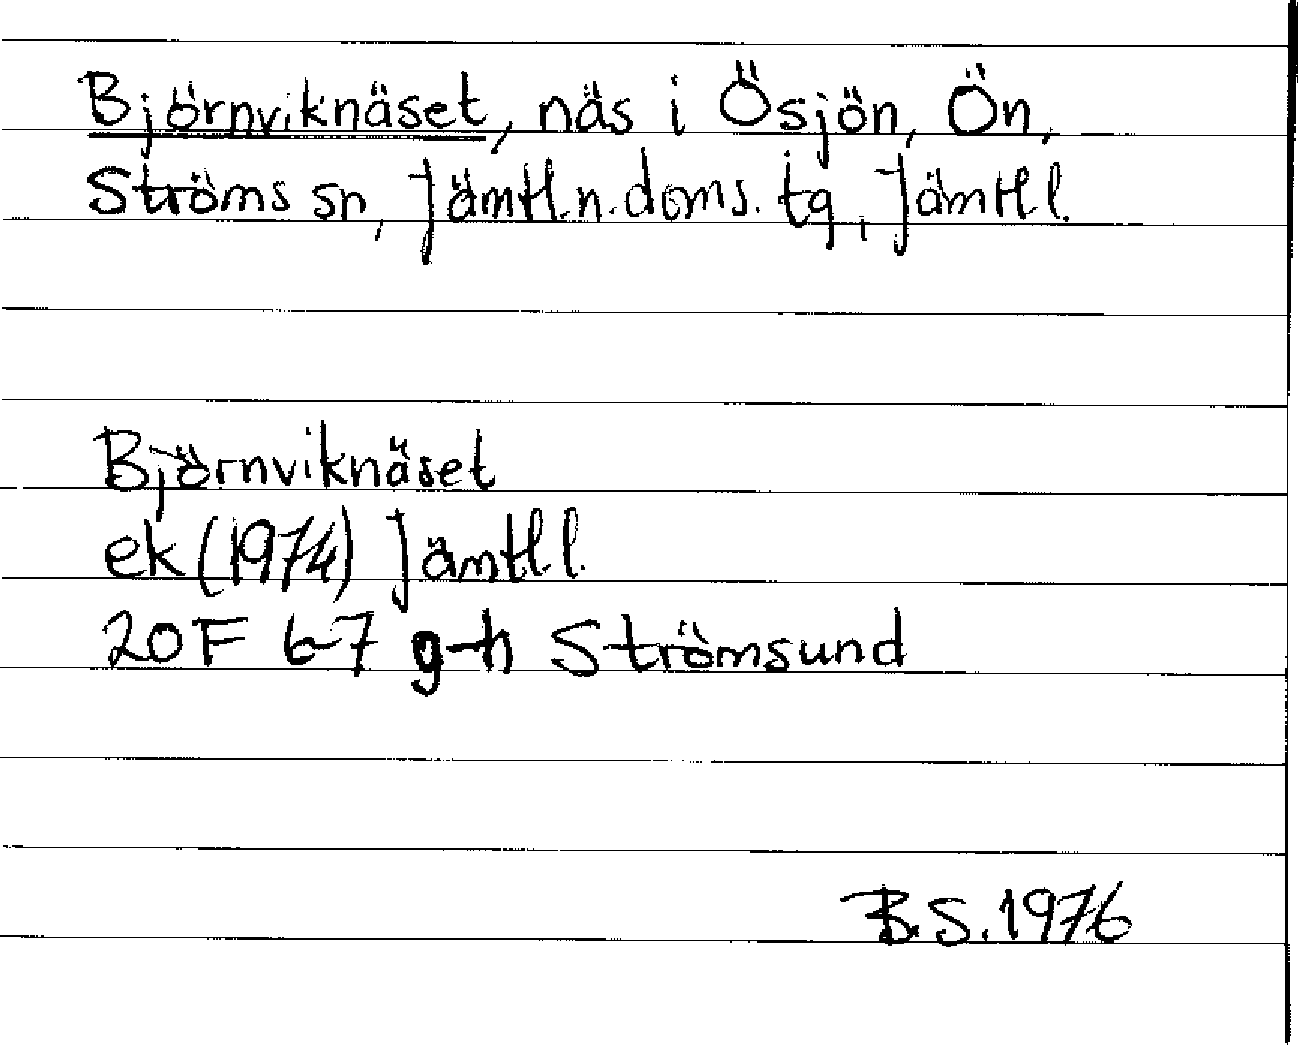 Björnviknäset, näs i Ösjön, Ön,
Ströms sn, Jämtl.n.doms.tg, Jämtl l.
Björnviknäset
ek (1974) Jämtl l.
20F 6-7 g-h Strömsund
B.S. 1976